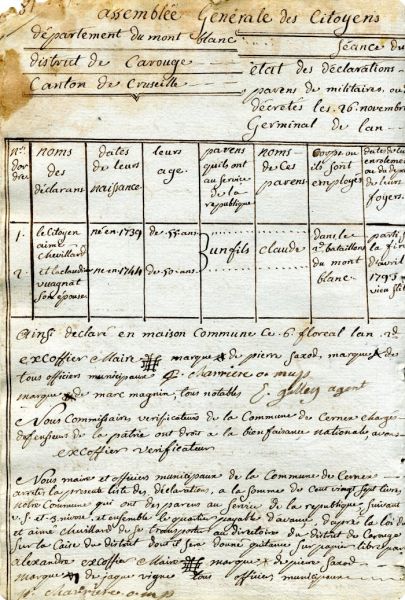 assemblée Generale des Citoyens
département du mont blanc
Séance du
district de Carouge
etat des déclarations
Canton de Cruseille
parens de militaires, ou
décretés les 26 novembre
Germinal de lan
nos. dordre
noms des déclarans
dates de leurs naissance.
leurs age.
parens quils ont au service de la republique
noms de Ces parens
Corps ou ils sont employés
dates de leur enrolement ou du depart de leurs foyers.
1. le citoyen aimé chevillard
né en 1739
de 55 ans
un fils
claude
dans le 2e bataillon du mont blanc.
parti sur la fin d'avril 1793
2. et la claudine vuagnat son épouse.
née en 1744
de 50 ans
Ainsi declaré en maison Commune Ce 6e floreal lan 2d
excoffier Maire marque de pierre Saxod, marque de
tous officiers municipaux p. Charriere o mup
marque de marc magnin, tous notables E. gallay agent
Nous Commissaires verificateurs de la Commune de Cernex chargés
defenseurs de la patrie ont droit a la bienfaisance nationale, avons
excoffier verificateur
Nous maire et officiers municipaux de la Commune de Cernex
arreter la presente liste des déclarations, a la somme de Cent vingt sept livres,
notre Commune qui ont des parens au Service de la republique, suivant
et ensemble le quartier payable d'avance, d'après la loi du
et aimé chevillard de se transporter au directoire du district de Carouge
sur la Caise du district dont il sera donné quittance sur papier libre par
alexandre excoffier Maire marque de pierre Saxod
marque de jaque vigne tous officiers municipaux
p. Charriere o mup